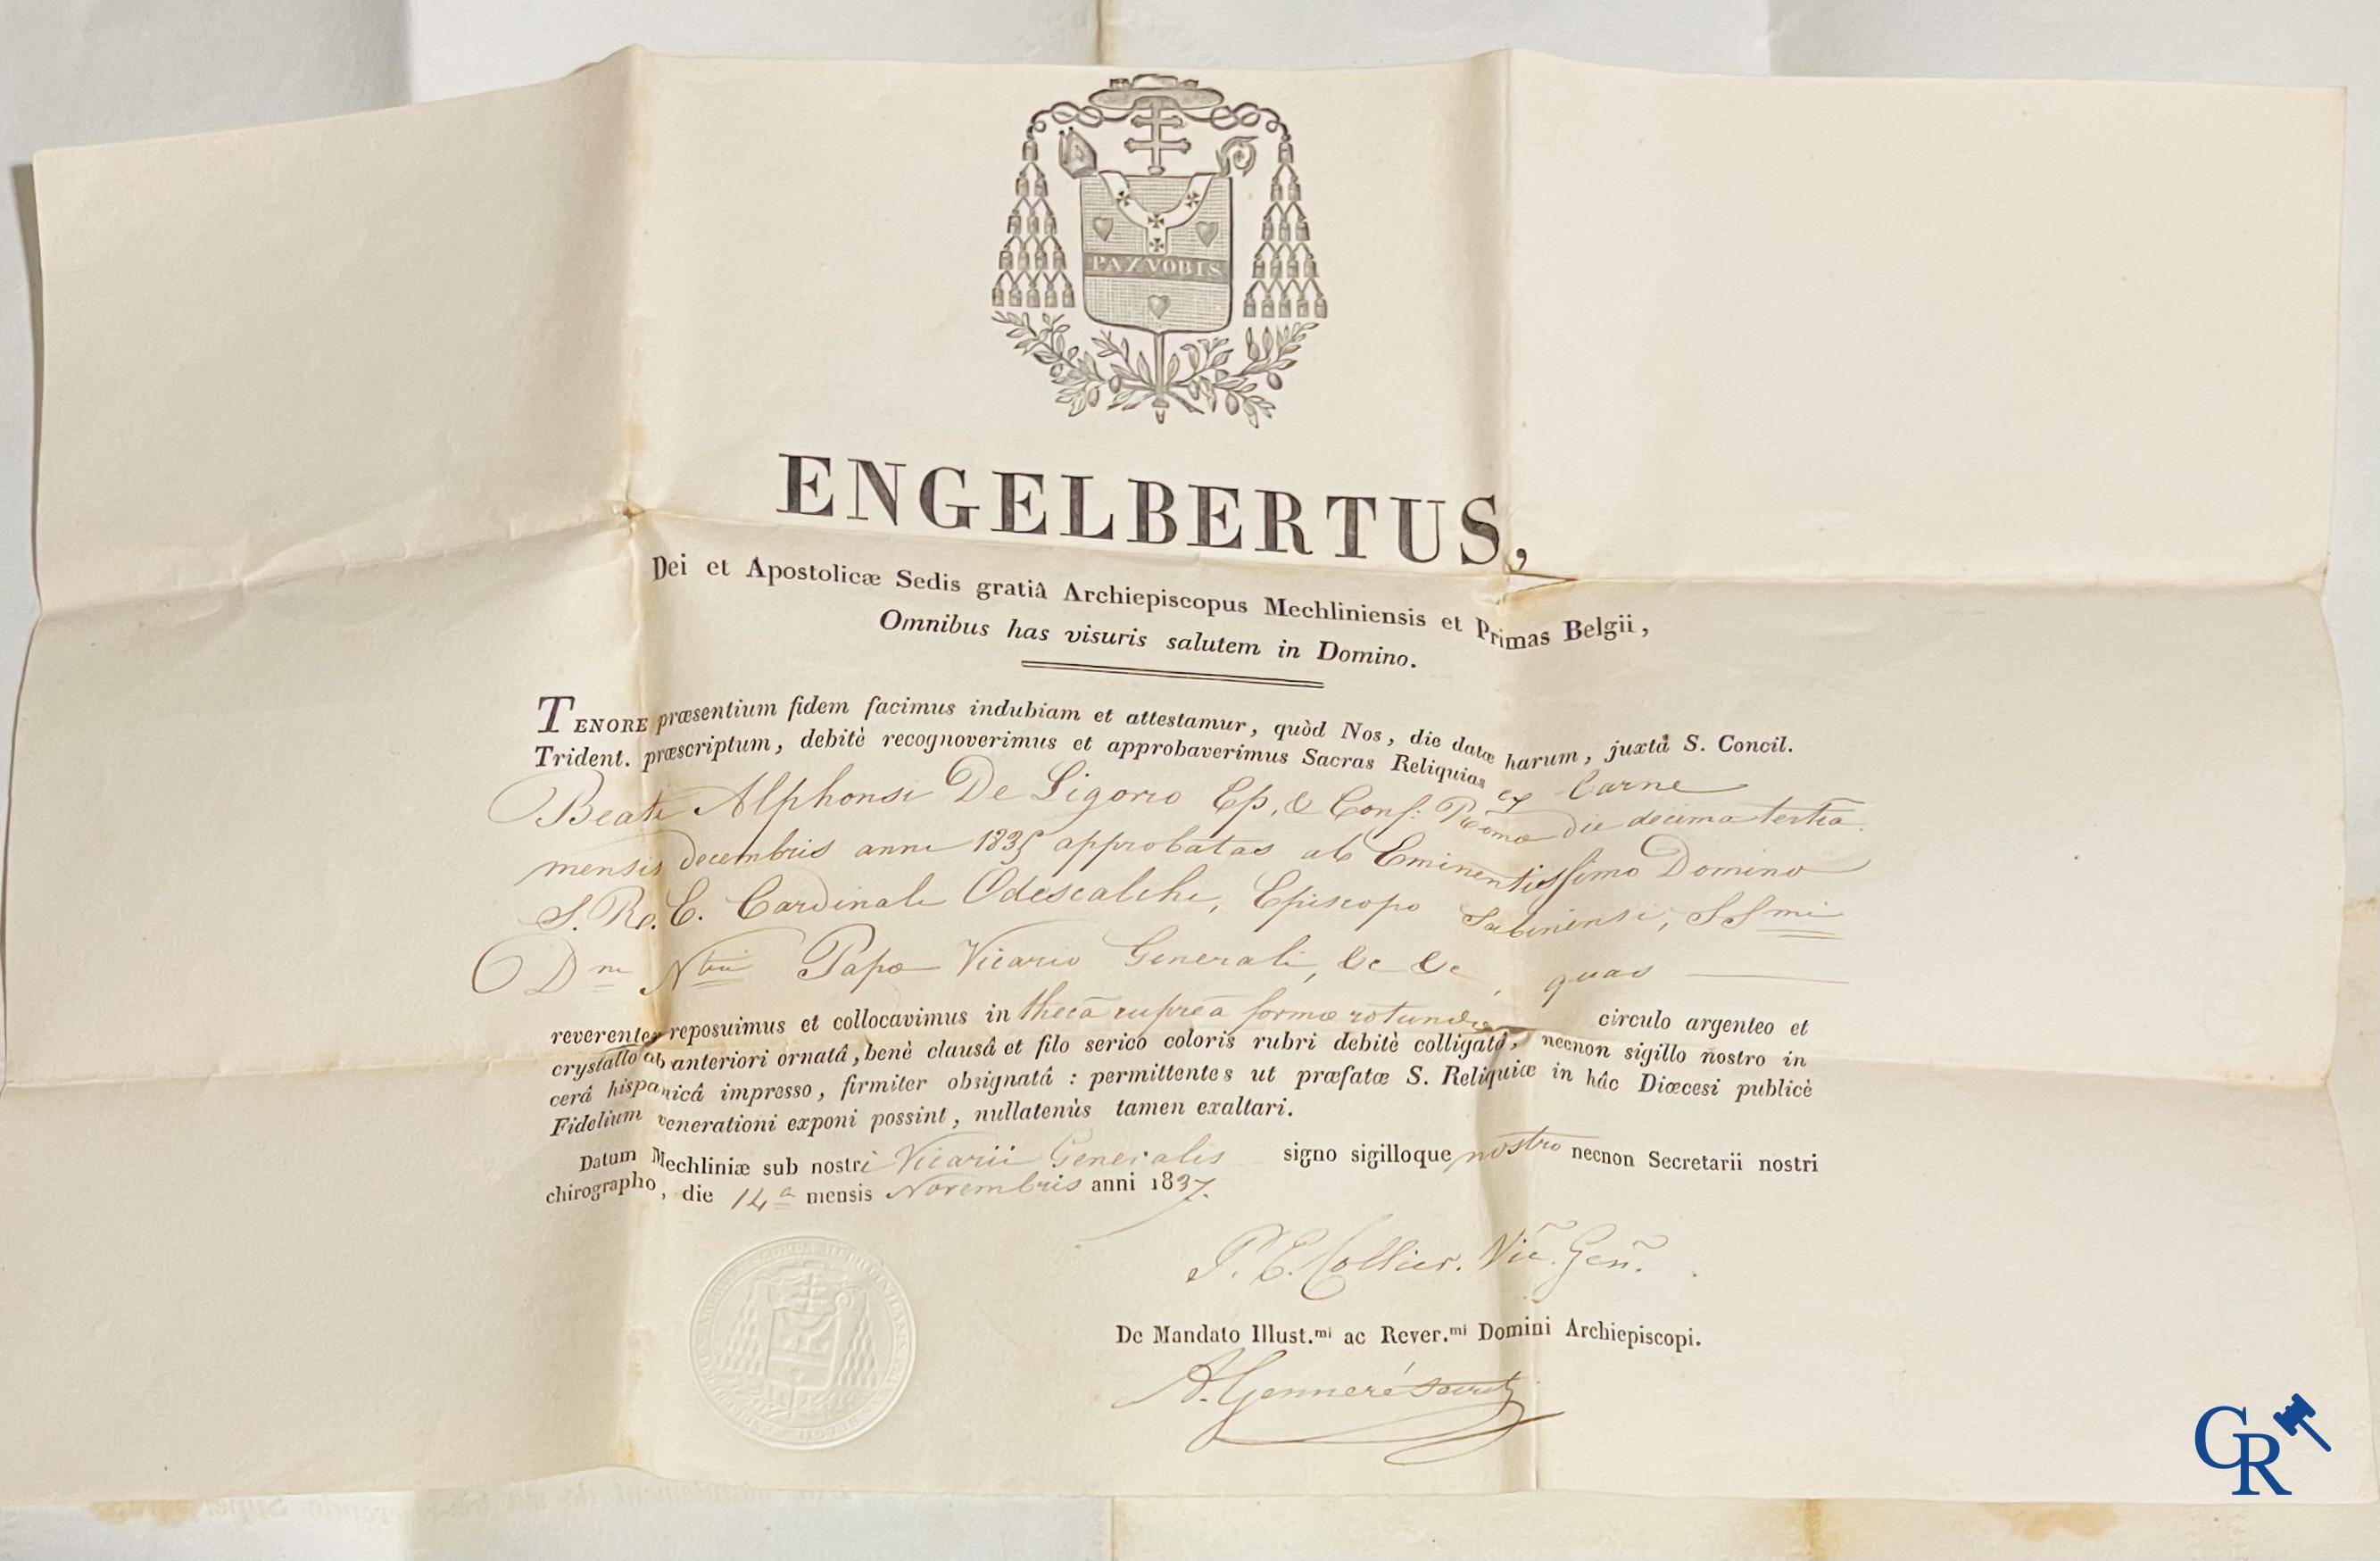 PAX VOBIS
ENGELBERTUS,
Dei et Apostolicæ Sedis gratiâ Archiepiscopus Mechliniensis et Primas Belgii,
Omnibus has visuris salutem in Domino.
TENORE præsentium fidem facimus indubiam et attestamur, quòd Nos, die datæ harum, juxtà S. Concil.
Trident. præscriptum, debitè recognoverimus et approbaverimus Sacras Reliquias ex Carne
Beati Alphonsi De Ligorio Ep. & Conf: Romæ die decima tertia
mensis decembris anni 1835 approbatas ab Eminentissimo Domino
S. R. E. Cardinali Odescalchi, Episcopo Sabinensi, SSmi
Dni Ntri Papæ Vicario Generali, &c &c, quas
reverenter reposuimus et collocavimus in thecâ cupreâ formæ rotundæ circulo argenteo et
crystallo ab anteriori ornatâ, benè clausâ et filo serico coloris rubri debitè colligatâ, necnon sigillo nostro in
cerâ hispanicâ impresso, firmiter obsignatâ : permittentes ut præfatæ S. Reliquiæ in hâc Diœcesi publicè
Fidelium venerationi exponi possint, nullatenùs tamen exaltari.
Datum Mechliniæ sub nostri Vicarii Generalis signo sigilloque nostro necnon Secretarii nostri
chirographo, die 14a mensis Novembris anni 1837.
P. E. Collier. Vic. Gen.
De Mandato Illust.mi ac Rever.mi Domini Archiepiscopi.
A. Genneré Secret
GR